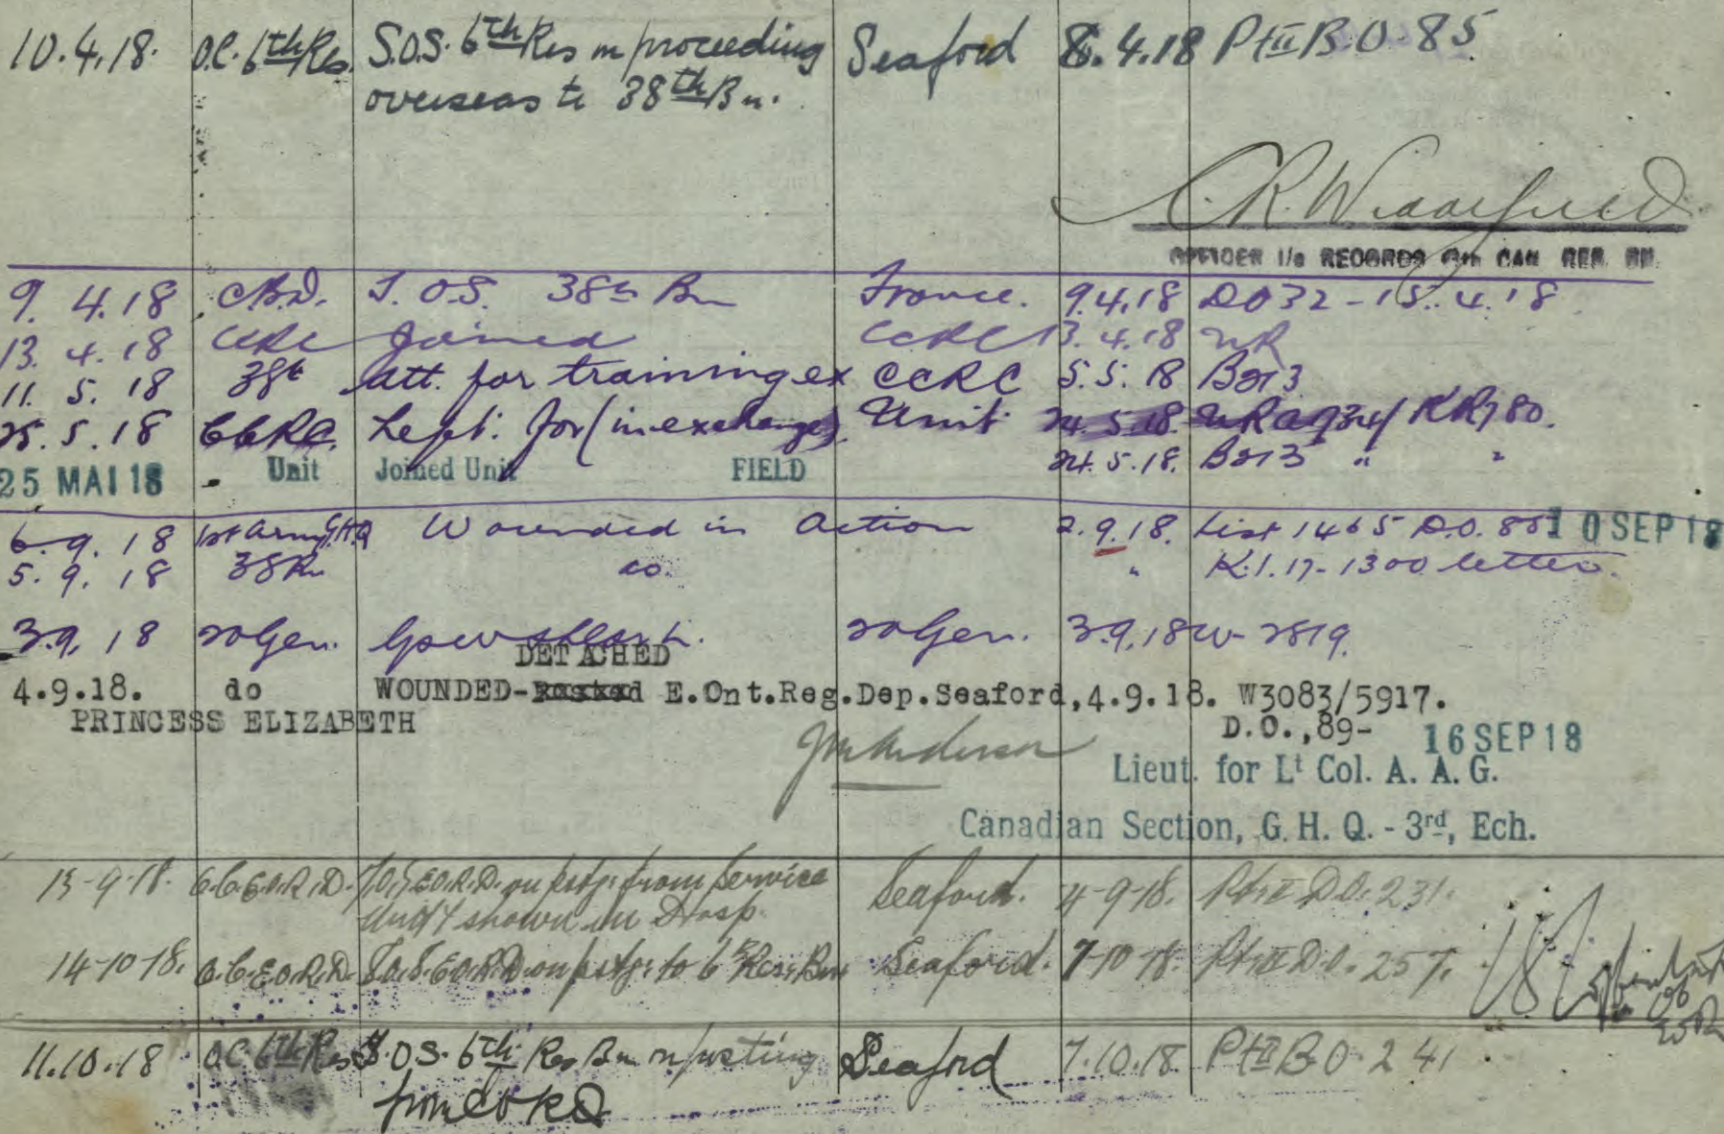 10.4.18. O.C. 6th Res. S.O.S. 6th Res on proceeding Seaford 8.4.18 Pt II B.O. 85
overseas to 38th Bn.
OFFICER i/c RECORDS 6th CAN RES. BN.
9. 4.18 C.B.D. T.O.S. 38th Bn France. 9.4.18 DO 32 - 15.4.18.
13. 4.18 CCRC Joined CCRC 13.4.18 NR
11. 5.18 38th att. for training ex CCRC 5.5.18 B213
25.5.18 CCRC. Left. for (in exchange) Unit 24.5.18. NR KR780.
24.5.18. B213 " "
25 MAI 18 Unit Joined Unit FIELD
6.9.18 1st Army GHQ Wounded in Action 2.9.18. List 1465 D.O. 88 10 SEP 18
5.9.18 38Bn do. " K.1.17-1300 letter.
3.9.18 20 Gen. GSW 20 Gen. 3.9.18 W-2819.
DETACHED
4.9.18. do WOUNDED-Posted E.Ont.Reg.Dep.Seaford,4.9.18. W3083/5917.
PRINCESS ELIZABETH D.O.,89- 16 SEP 18
Lieut. for Lt Col. A. A. G.
Canadian Section, G. H. Q. - 3rd, Ech.
13-9-18. O.C.E.O.R.D. T.O.S. E.O.R.D. on pstg. from Service Seaford. 4-9-18. Pt II D.O. 231.
Unit & shown in Hosp.
14-10-18. O.C.E.O.R.D. S.O.S. E.O.R.D. on pstg. to 6th Res. Bn Seaford. 7-10-18. Pt II D.O. 257.
11.10.18 O.C. 6th Res T.O.S. 6th Res Bn on posting Seaford 7.10.18 Pt II B.O. 241
from EORD